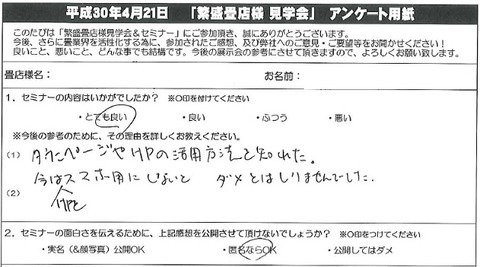 平成30年4月21日 「繁盛畳店様 見学会」 アンケート用紙
このたびは「繁盛畳店様見学会&セミナー」にご参加頂き、誠にありがとうございます。
今後、さらに畳業界を活性化する為に、参加されたご感想、及び弊社へのご意見・ご要望等をお聞かせください!
良いこと、悪いこと、どんな事でも結構です。今後の展示会の参考にさせて頂きますので、よろしくお願い致します。
畳店様名: お名前:
1.セミナーの内容はいかがでしたか? ※○印を付けてください
・とても良い ・良い ・ふつう ・悪い
※今後の参考のために、その理由を詳しくお教えください。
(1) タウンページやHPの活用方法を知れた。
今はスマホ用にしないと ダメとはしりませんでした。
(2) HPを
2.セミナーの面白さを伝えるために、上記感想を公開させて頂けないでしょうか? ※○印をつけてください
・実名(&顔写真)公開OK ・匿名ならOK ・公開してはダメ